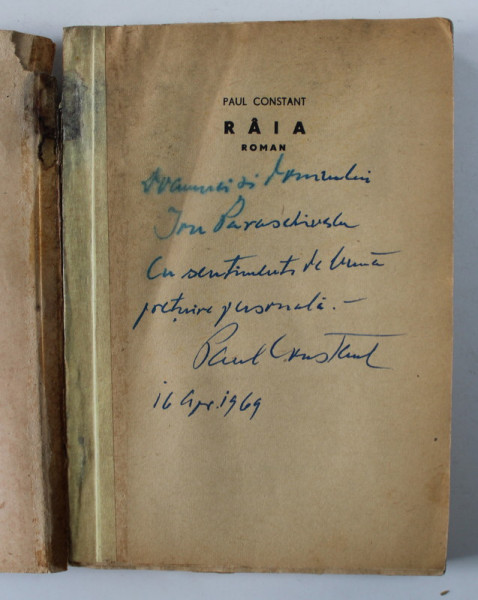 PAUL CONSTANT
RÂIA
ROMAN
Doamnei și domnului
Ion Paraschivescu
Cu sentimente de bună
prețuire personală. –
Paul Constant
16 Apr. 1969